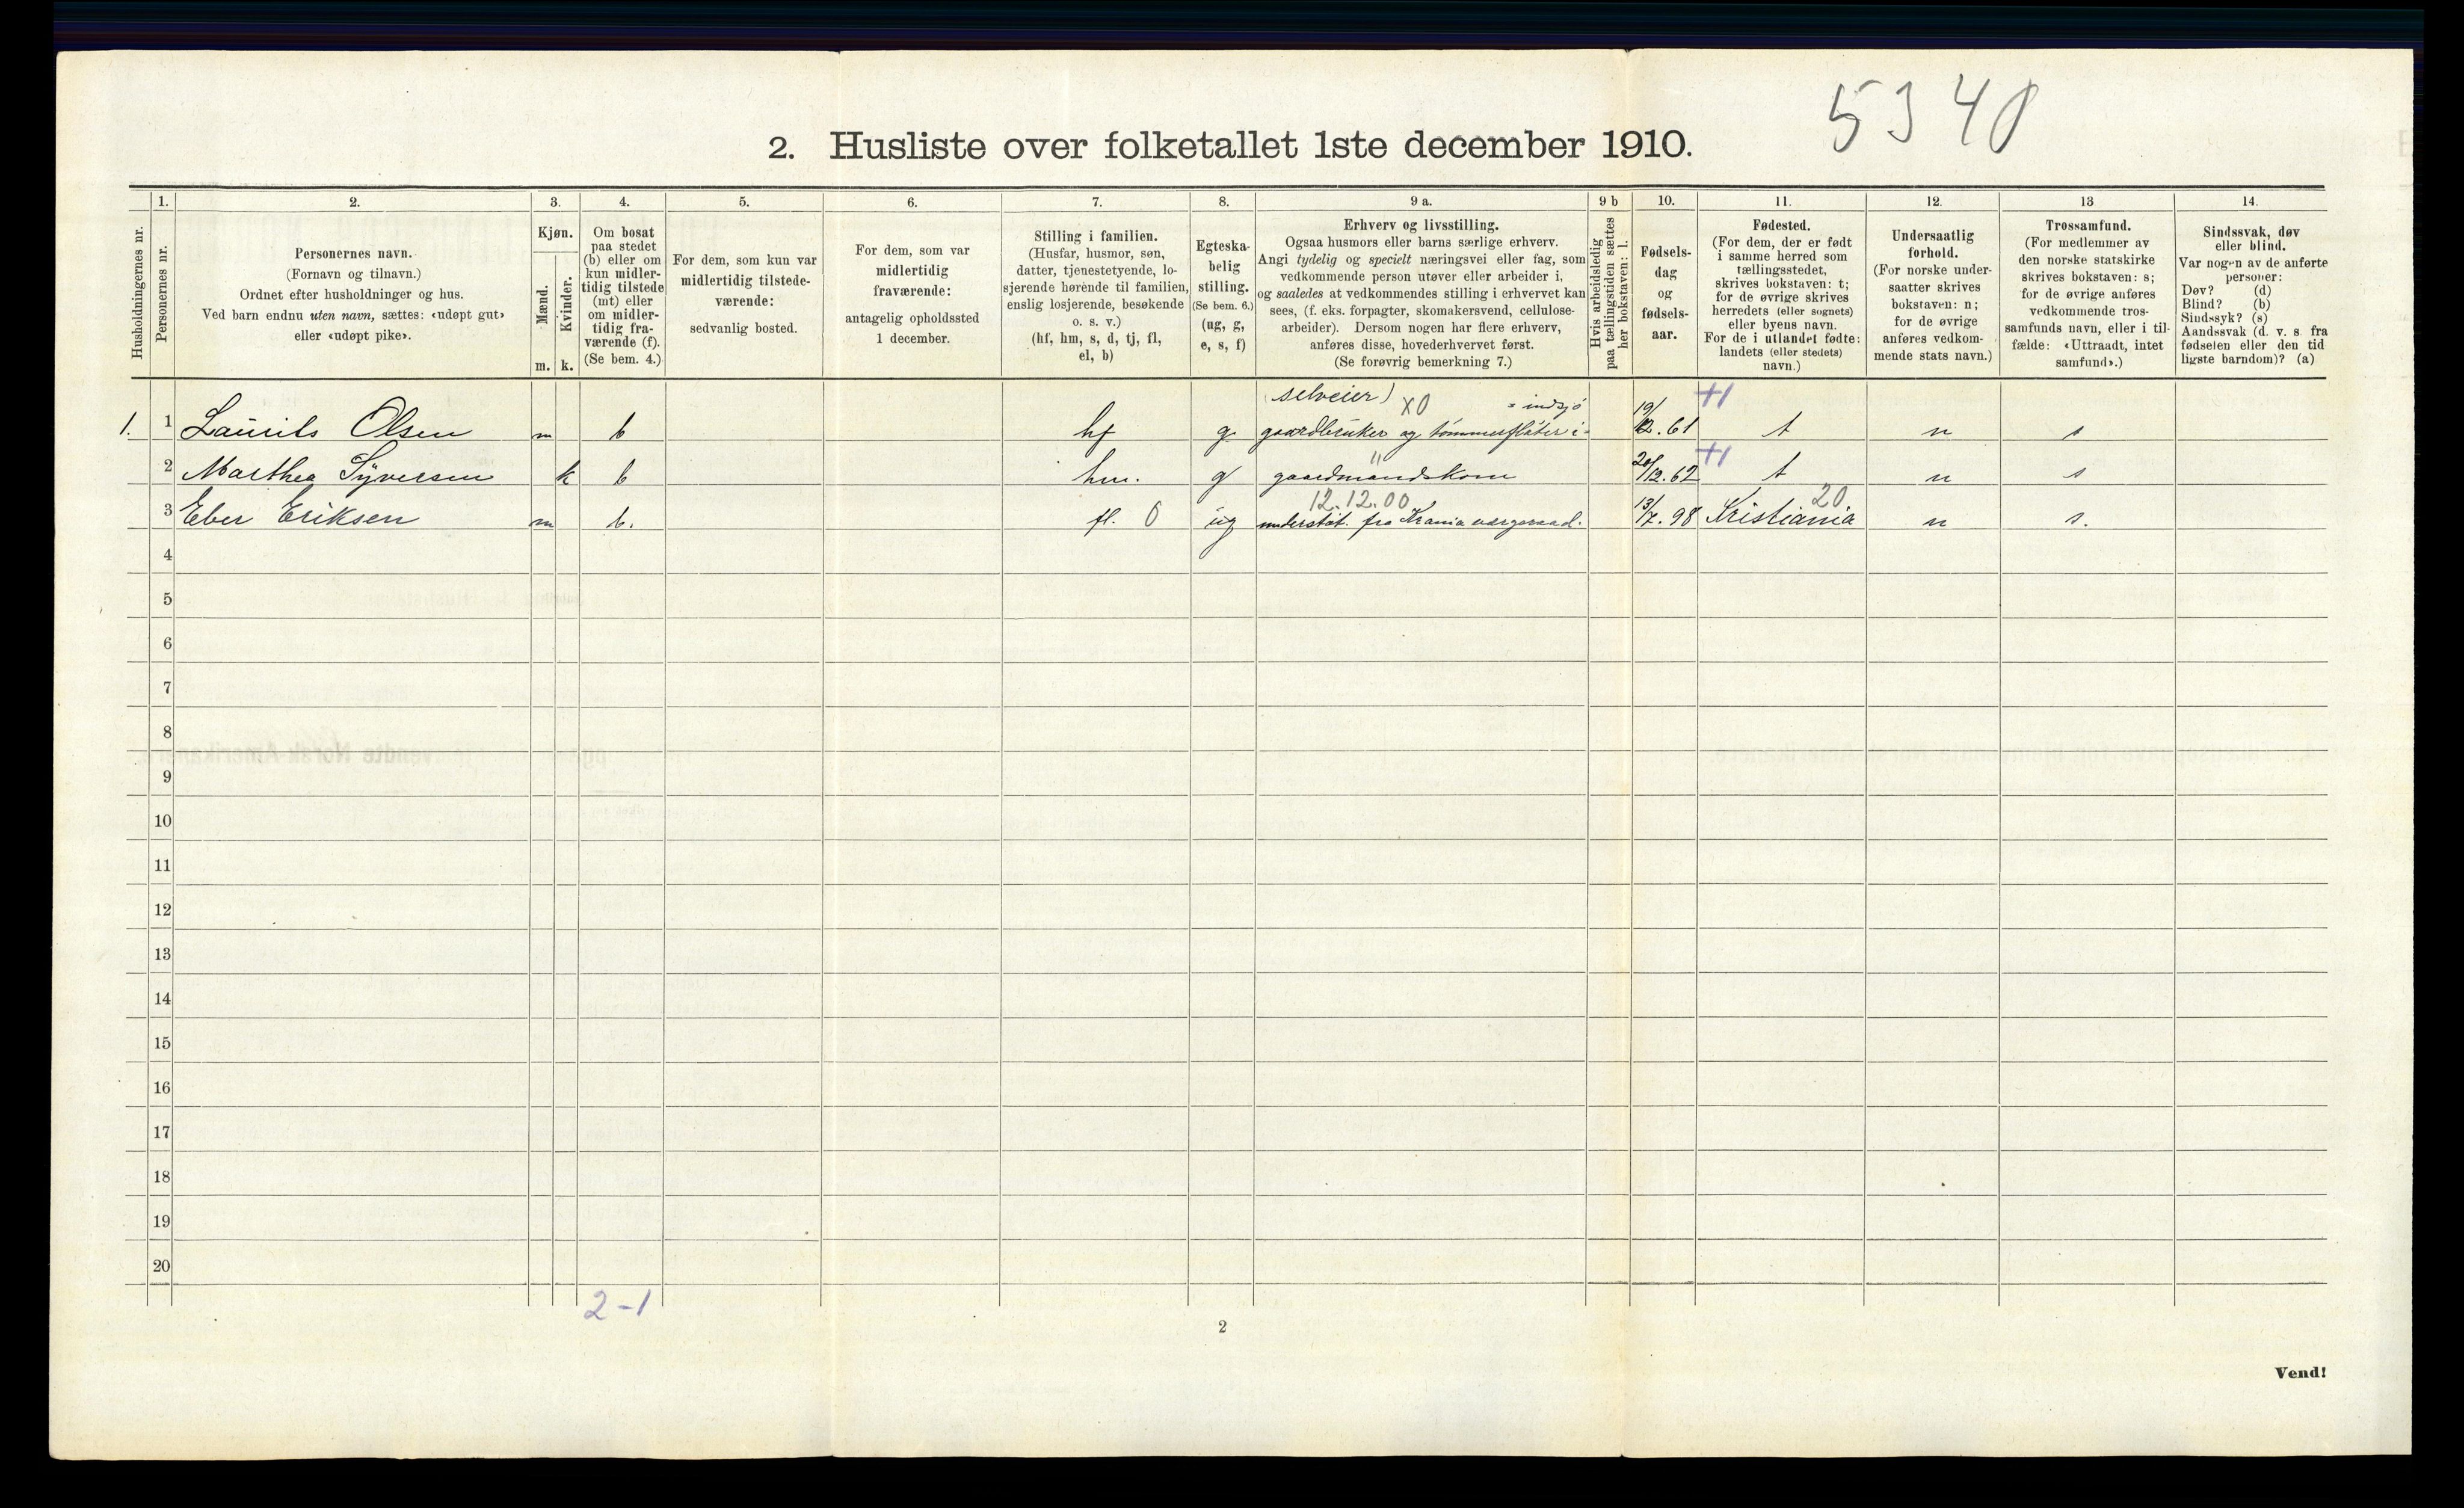 5340
2. Husliste over folketallet 1ste december 1910.
Husholdningernes nr.
1.
Personernes nr.
2.
Personernes navn.
(Fornavn og tilnavn.)
Ordnet efter husholdninger og hus.
Ved barn endnu uten navn, sættes: «udøpt gut»
eller «udøpt pike».
3.
Kjøn.
Mænd.
Kvinder.
m. k.
4.
Om bosat
paa stedet
(b) eller om
kun midler-
tidig tilstede
(mt) eller
om midler-
tidig fra-
værende (f).
(Se bem. 4.)
5.
For dem, som kun var
midlertidig tilstede-
værende:
sedvanlig bosted.
6.
For dem, som var
midlertidig
fraværende:
antagelig opholdssted
1 december.
7.
Stilling i familien.
(Husfar, husmor, søn,
datter, tjenestetyende, lo-
sjerende hørende til familien,
enslig losjerende, besøkende
o. s. v.)
(hf, hm, s, d, tj, fl,
el, b)
8.
Egteska-
belig
stilling.
(Se bem. 6.)
(ug, g,
e, s, f)
9 a.
Erhverv og livsstilling.
Ogsaa husmors eller barns særlige erhverv.
Angi tydelig og specielt næringsvei eller fag, som
vedkommende person utøver eller arbeider i,
og saaledes at vedkommendes stilling i erhvervet kan
sees, (f. eks. forpagter, skomakersvend, cellulose-
arbeider). Dersom nogen har flere erhverv,
anføres disse, hovederhvervet først.
(Se forøvrig bemerkning 7.)
9 b
Hvis arbeidsledig
paa tællingstiden sættes
her bokstaven: l.
10.
Fødsels-
dag
og
fødsels-
aar.
11.
Fødested.
(For dem, der er født
i samme herred som
tællingsstedet,
skrives bokstaven: t;
for de øvrige skrives
herredets (eller sognets)
eller byens navn.
For de i utlandet fødte:
landets (eller stedets)
navn.)
12.
Undersaatlig
forhold.
(For norske under-
saatter skrives
bokstaven: n;
for de øvrige
anføres vedkom-
mende stats navn.)
13
Trossamfund.
(For medlemmer av
den norske statskirke
skrives bokstaven: s;
for de øvrige anføres
vedkommende tros-
samfunds navn, eller i til-
fælde: «Uttraadt, intet
samfund».)
14.
Sindssvak, døv
eller blind.
Var nogen av de anførte
personer:
Døv? (d)
Blind? (b)
Sindssyk? (s)
Aandssvak (d. v. s. fra
fødselen eller den tid
ligste barndom)? (a)
selveier) X0 = indsjø +1
1. 1 Laurits Olsen m b hf g gaardbruker og tømmerfløter i- 19/12.61 t n s
" +1
2 Marthea Syversen k b hm. g gaardmandskone 20/12.62 t n s
12.12.00 20
3 Eber Eriksen m b. fl. 0 ug understøt. fra Krania værgeraad. 13/7.98 Kristiania n s.
4
5
6
7
8
9
10
11
12
13
14
15
16
17
18
19
20
2-1
2
Vend!